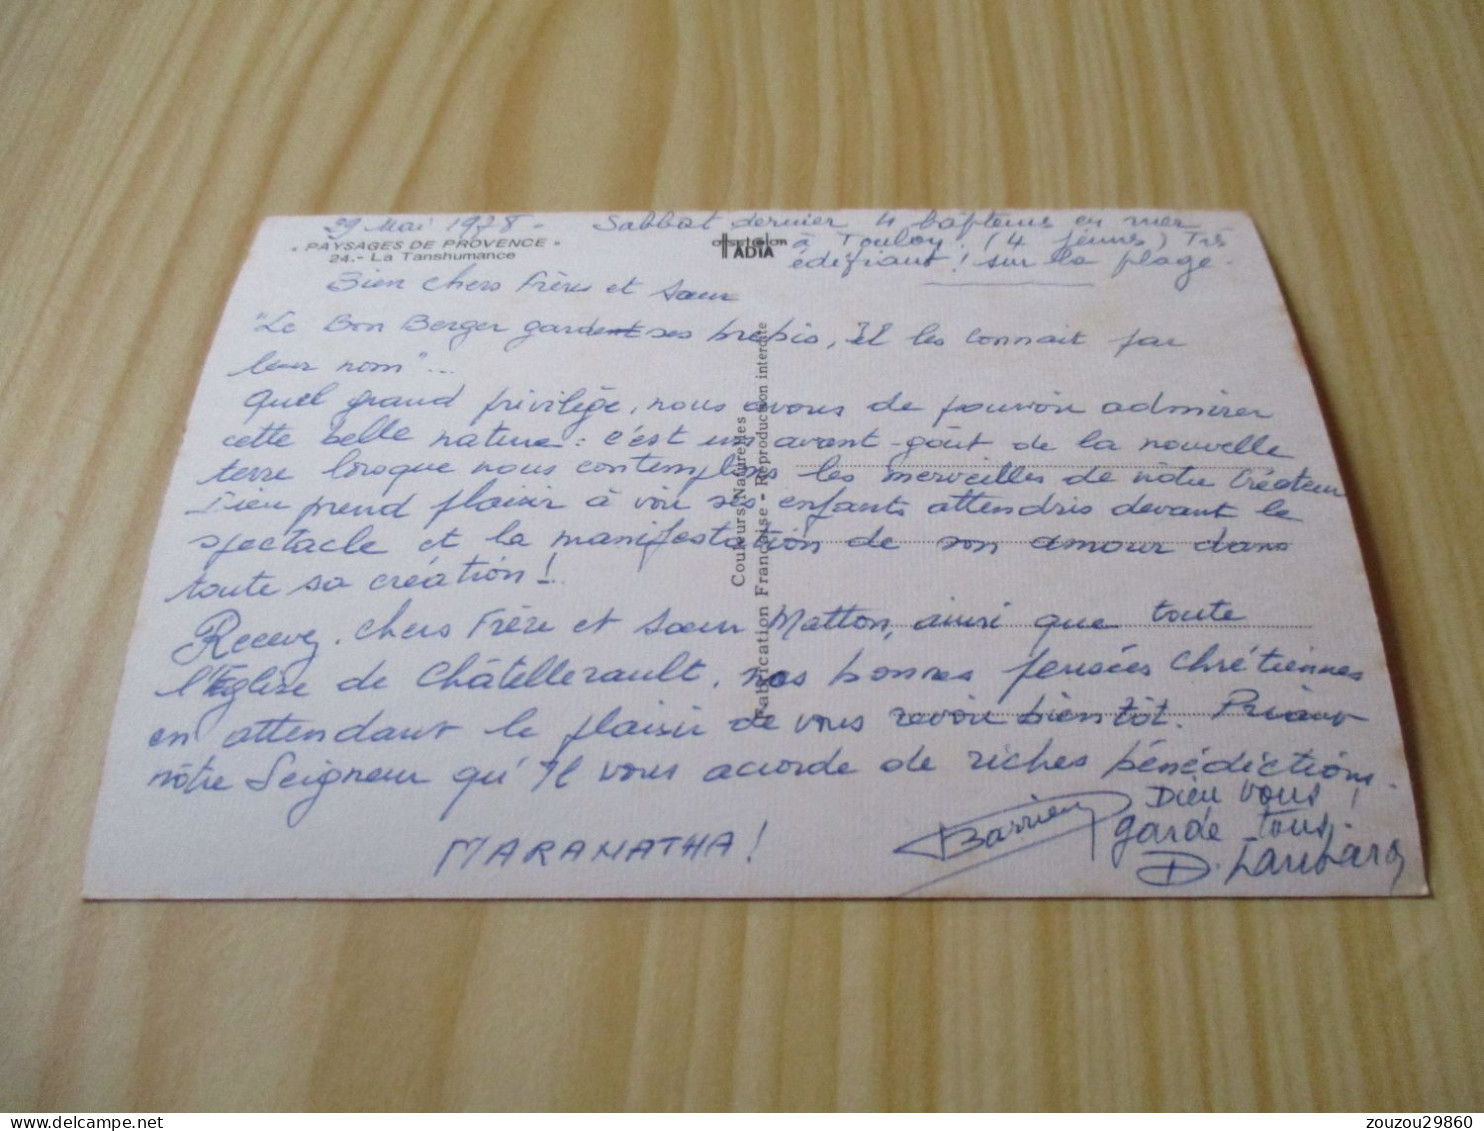 29 Mai 1978 - Sabbat dernier 4 baptêmes en mer
à Toulon. (4 jeunes) Très
édifiant! sur la plage.
" PAYSAGES DE PROVENCE "
24. - La Tanshumance
OFFSET COLOR
ADIA
Bien chers Frères et Sœur
"Le Bon Berger garde ses brebis, Il les connait par
leur nom"...
Quel grand privilège, nous avons de pouvoir admirer
cette belle nature : c'est un avant-goût de la nouvelle
terre lorsque nous contemplons les merveilles de nôtre Créateur
Dieu prend plaisir à voir ses enfants attendris devant le
spectacle et la manifestation de son amour dans
toute sa création!
Recevez, chers Frère et Sœur Matton, ainsi que toute
l'Eglise de Châtellerault, nos bonnes pensées Chrétiennes
en attendant le plaisir de vous revoir bientôt. Priant
nôtre Seigneur qu'Il vous accorde de riches bénédictions.
MARANATHA!
Dieu vous
garde tous!
Couleurs Naturelles
Fabrication Française - Reproduction interdite
zouzou29860